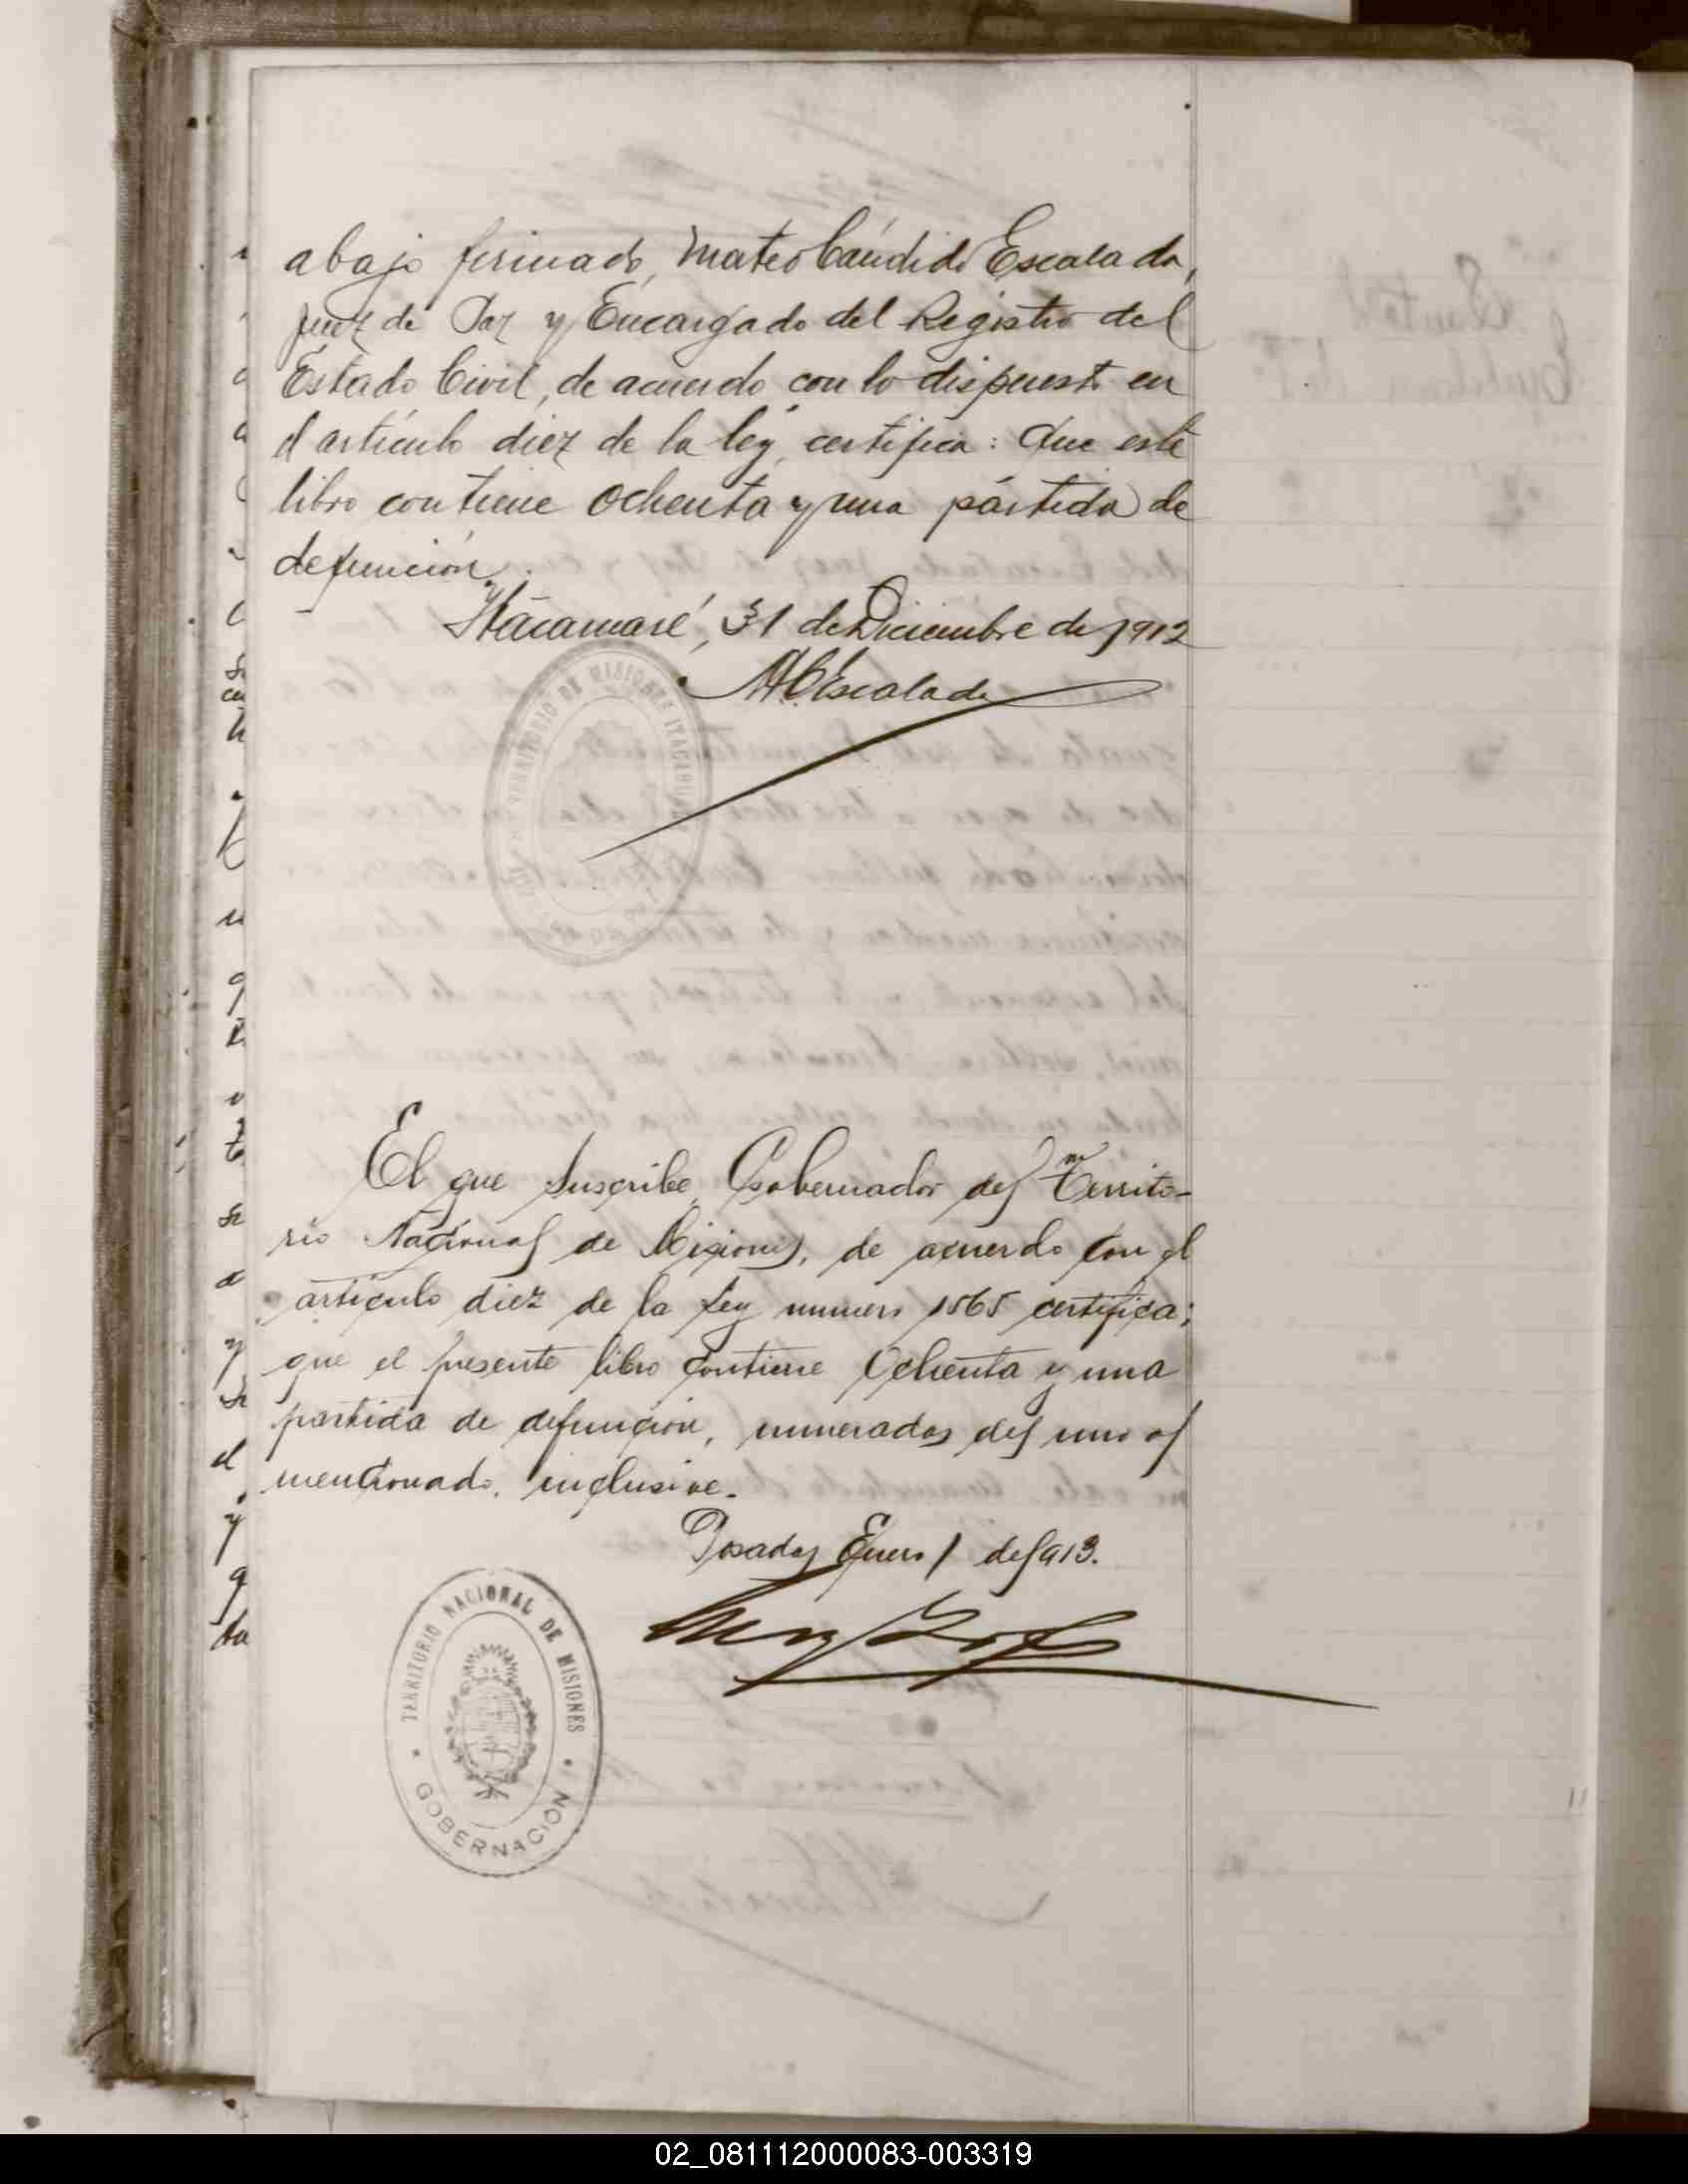 abajo firmado, Mateo Cándido Escalada,
Juez de Paz y Encargado del Registro del
Estado Civil, de acuerdo con lo dispuesto en
el artículo diez de la ley, certifica: Que este
libro contiene ochenta y una pártida de
defunción.
Itacaruaré, 31 de Diciembre de 1912
M.C. Escalada
TERRITORIO DE MISIONES ITACARUARÉ
El que suscribe, Gobernador del Territo-
rio Nacional de Misiones, de acuerdo con el
artículo diez de la Ley numero 1565 certifica;
que el presente libro contiene Ochenta y una
partida de defunción, numeradas del uno al
mencionado, inclusive.
Posadas Enero 1 de 1913.
TERRITORIO NACIONAL DE MISIONES
GOBERNACIÓN
02_081112000083-003319